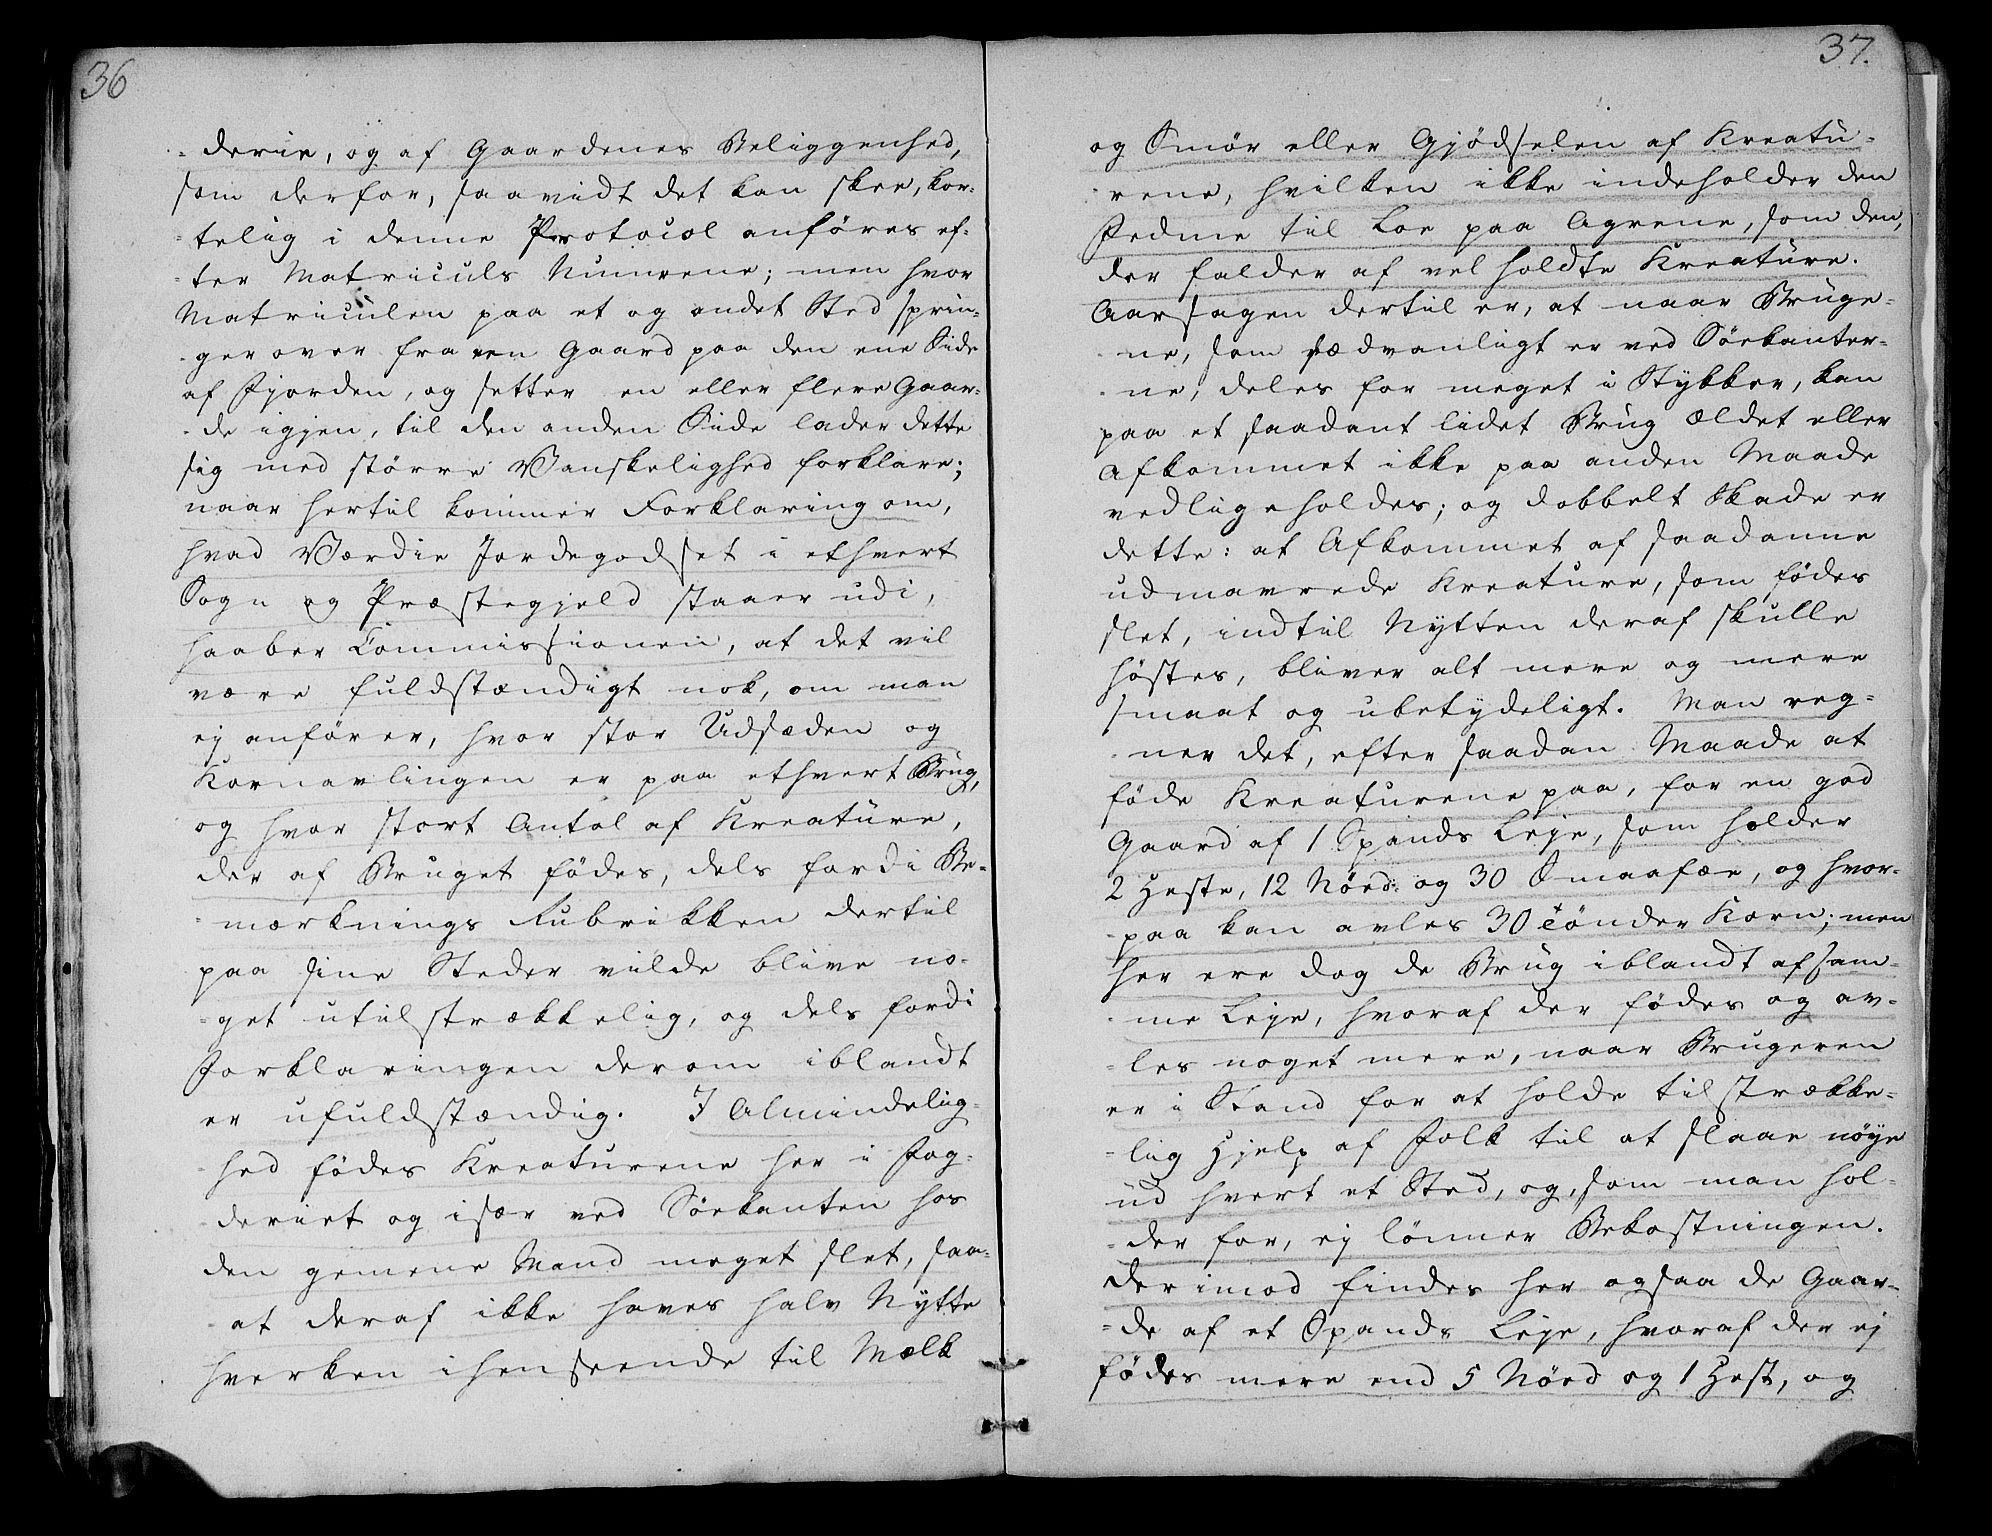 36
-derie, og af Gaardenes Beliggenhed,
som derfor, saavidt det kan skee, kor-
-telig i denne Protocol anföres ef-
-ter Matriculs Numrene; men hvor
Matriculen paa et og andet Sted sprin-
-ger over fra een Gaard paa den ene Side
af Fjorden, og setter en eller flere Gaar-
-de igjen, til den anden Side lader dette
sig med större Vanskelighed forklare;
naar hertil kommer Forklaring om,
hvad Værdie Jordegodset i ethvert
Sogn og Præstegjeld staaer udi,
haaber Commissionen, at det vil
være fuldstændigt nok, om man
ej anförer, hvor stor Udsæden og
Kornavlingen er paa ethvert Brug,
og hvor stort Antal af Kreature,
der af Bruget födes, dels fordi Be-
-mærknings Rubrikken dertil
paa sine Steder vilde blive no-
-get utilstrækkelig, og dels fordi
Forklaringen derom iblandt
er ufuldstændig. I Almindelig-
-hed födes Kreaturene her i Fog-
-deriet og især ved Söekanten hos
den gemene Mand meget slet, saa-
-at deraf ikke haves halv Nytte
hverken ihenseende til Mælk
37.
og Smör eller Gjödselen af Kreatu-
-rene, hvilken ikke indeholder den
Fedme til Loe paa Agrene, som den,
der falder af vel holdte Kreature.
Aarsagen dertil er, at naar Bruge-
-ne, som sædvanligt er ved Söekanter-
-ne, deles for meget i Stykker, kan
paa et saadant lidet Brug Ældet eller
Afkommet ikke paa anden Maade
vedligeholdes; og dobbelt Skade er
dette: at Afkommet af saadanne
udmavrede Kreature, som födes
slet, indtil Nytten deraf skulle
höstes, bliver alt mere og mere
smaat og ubetydeligt. Man reg-
-ner det, efter saadan Maade at
föde Kreaturene paa, for en god
Gaard af 1 Spands Leje, som holder
2 Heste, 12 Nöed: og 30 Smaafæe, og hvor-
-paa kan avles 30 tönder Korn; men
her ere dog de Brug iblandt af sam-
-me Leje, hvoraf der födes og av-
-les noget mere, naar Brugeren
er i Stand for at holde tilstrække-
-lig Hjelp af Folk til at slaae nöye
ud hvert et Sted, og, som man hol-
-der for, ej lönner Bekostningen.
Derimod findes her ogsaa de Gaar-
-de af et Spands Leje, hvoraf der ej
födes mere end 5 Nöed og 1 Hest, og